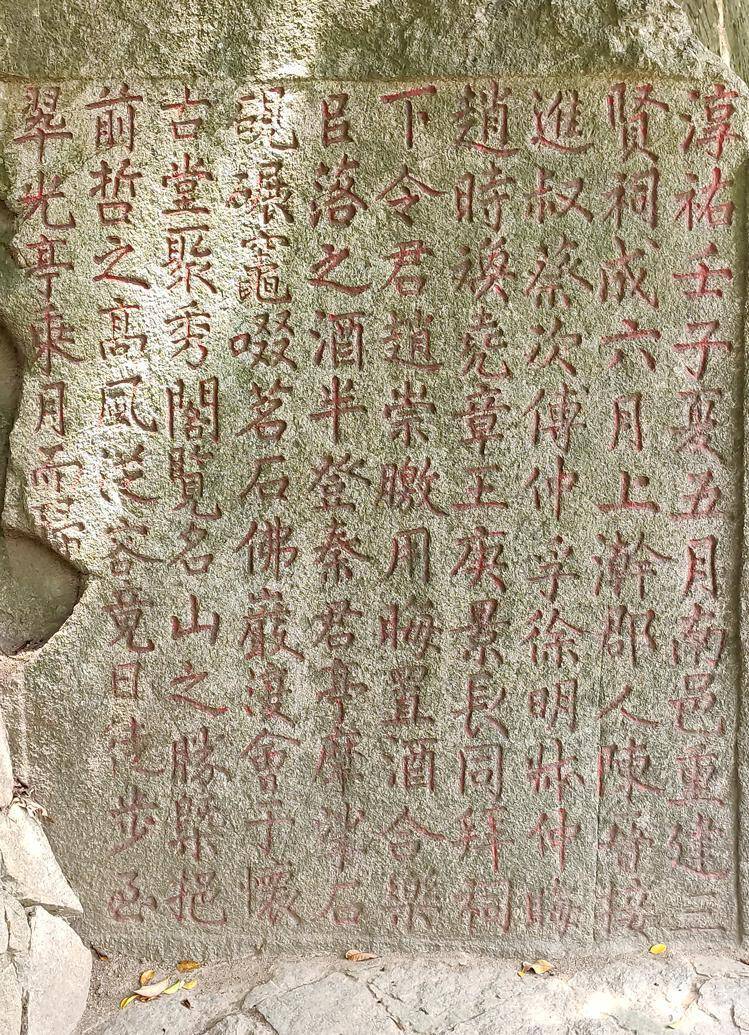 淳祐壬子夏五月南邑重建三
賢祠成六月上澣郡人陳接
進叔蔡次傅仲孚徐明叔仲晦
趙時煥堯章王爽景長同拜祠
下令君趙崇瞮用晦置酒合樂
㠯落之酒半登秦君亭摩挲石
硯碾竈啜茗石佛巖復會于懷
古堂聚秀閣覽名山之勝槩挹
前哲之髙風從容竟日徒步
翠光亭乘月而歸